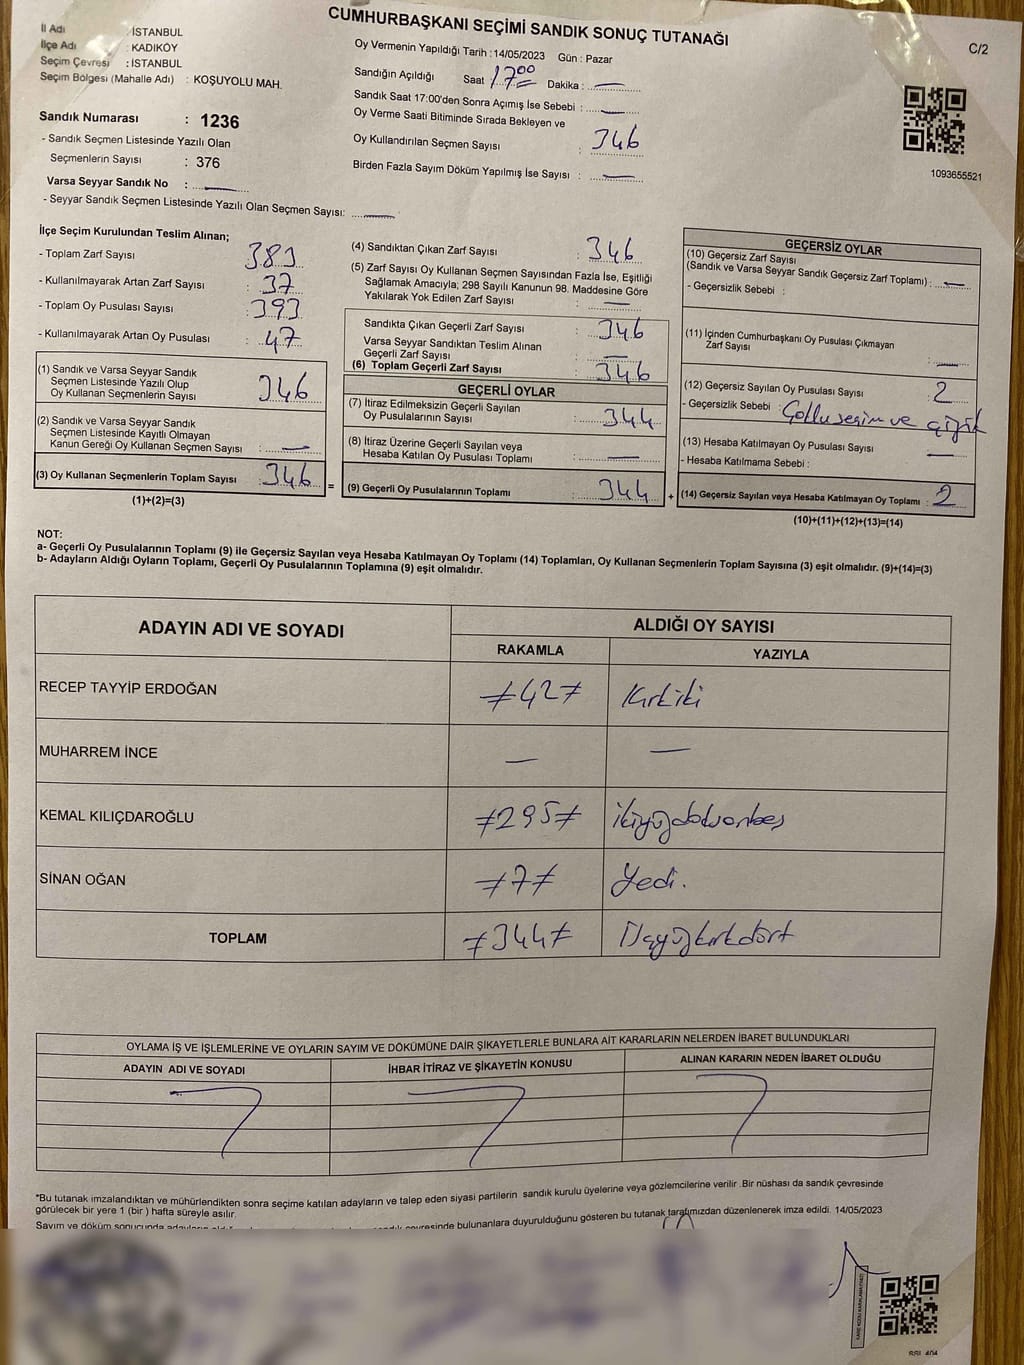 CUMHURBAŞKANI SEÇİMİ SANDIK SONUÇ TUTANAĞI
C/2
İl Adı : İSTANBUL
İlçe Adı : KADIKÖY
Seçim Çevresi : İSTANBUL
Seçim Bölgesi (Mahalle Adı) : KOŞUYOLU MAH.
Sandık Numarası : 1236
- Sandık Seçmen Listesinde Yazılı Olan
Seçmenlerin Sayısı : 376
Varsa Seyyar Sandık No : —
- Seyyar Sandık Seçmen Listesinde Yazılı Olan Seçmen Sayısı: —
Oy Vermenin Yapıldığı Tarih : 14/05/2023 Gün : Pazar
Sandığın Açıldığı Saat 17:00 Dakika : —
Sandık Saat 17:00'den Sonra Açımış İse Sebebi : —
Oy Verme Saati Bitiminde Sırada Bekleyen ve
Oy Kullandırılan Seçmen Sayısı : 346
Birden Fazla Sayım Döküm Yapılmış İse Sayısı : —
1093655521
İlçe Seçim Kurulundan Teslim Alınan;
- Toplam Zarf Sayısı : 383
- Kullanılmayarak Artan Zarf Sayısı : 37
- Toplam Oy Pusulası Sayısı : 393
- Kullanılmayarak Artan Oy Pusulası : 47
(1) Sandık ve Varsa Seyyar Sandık
Seçmen Listesinde Yazılı Olup
Oy Kullanan Seçmenlerin Sayısı : 346
(2) Sandık ve Varsa Seyyar Sandık
Seçmen Listesinde Kayıtlı Olmayan
Kanun Gereği Oy Kullanan Seçmen Sayısı : —
(3) Oy Kullanan Seçmenlerin Toplam Sayısı : 346
(1)+(2)=(3)
=
(4) Sandıktan Çıkan Zarf Sayısı : 346
(5) Zarf Sayısı Oy Kullanan Seçmen Sayısından Fazla İse, Eşitliği
Sağlamak Amacıyla; 298 Sayılı Kanunun 98. Maddesine Göre
Yakılarak Yok Edilen Zarf Sayısı : —
Sandıkta Çıkan Geçerli Zarf Sayısı : 346
Varsa Seyyar Sandıktan Teslim Alınan
Geçerli Zarf Sayısı : —
(6) Toplam Geçerli Zarf Sayısı : 346
GEÇERLİ OYLAR
(7) İtiraz Edilmeksizin Geçerli Sayılan
Oy Pusulalarının Sayısı : 344
(8) İtiraz Üzerine Geçerli Sayılan veya
Hesaba Katılan Oy Pusulası Toplamı : —
(9) Geçerli Oy Pusulalarının Toplamı : 344
+
GEÇERSİZ OYLAR
(10) Geçersiz Zarf Sayısı
(Sandık ve Varsa Seyyar Sandık Geçersiz Zarf Toplamı) : —
- Geçersizlik Sebebi :
(11) İçinden Cumhurbaşkanı Oy Pusulası Çıkmayan
Zarf Sayısı : —
(12) Geçersiz Sayılan Oy Pusulası Sayısı : 2
- Geçersizlik Sebebi : Çoklu seçim ve çizik
(13) Hesaba Katılmayan Oy Pusulası Sayısı : —
- Hesaba Katılmama Sebebi :
(14) Geçersiz Sayılan veya Hesaba Katılmayan Oy Toplamı : 2
(10)+(11)+(12)+(13)=(14)
NOT:
a- Geçerli Oy Pusulalarının Toplamı (9) ile Geçersiz Sayılan veya Hesaba Katılmayan Oy Toplamı (14) Toplamları, Oy Kullanan Seçmenlerin Toplam Sayısına (3) eşit olmalıdır. (9)+(14)=(3)
b- Adayların Aldığı Oyların Toplamı, Geçerli Oy Pusulalarının Toplamına (9) eşit olmalıdır.
ADAYIN ADI VE SOYADI
ALDIĞI OY SAYISI
RAKAMLA YAZIYLA
RECEP TAYYİP ERDOĞAN ≠42≠ Kırkiki
MUHARREM İNCE — —
KEMAL KILIÇDAROĞLU ≠295≠ ikiyüzdoksanbeş
SİNAN OĞAN ≠7≠ Yedi.
TOPLAM ≠344≠ Üçyüzkırkdört
OYLAMA İŞ VE İŞLEMLERİNE VE OYLARIN SAYIM VE DÖKÜMÜNE DAİR ŞİKAYETLERLE BUNLARA AİT KARARLARIN NELERDEN İBARET BULUNDUKLARI
ADAYIN ADI VE SOYADI İHBAR İTİRAZ VE ŞİKAYETİN KONUSU ALINAN KARARIN NEDEN İBARET OLDUĞU
*Bu tutanak imzalandıktan ve mühürlendikten sonra seçime katılan adayların ve talep eden siyasi partilerin sandık kurulu üyelerine veya gözlemcilerine verilir .Bir nüshası da sandık çevresinde
görülecek bir yere 1 (bir ) hafta süreyle asılır.
Sayım ve döküm sonucunda çevresinde bulunanlara duyurulduğunu gösteren bu tutanak tarafımızdan düzenlenerek imza edildi. 14/05/2023